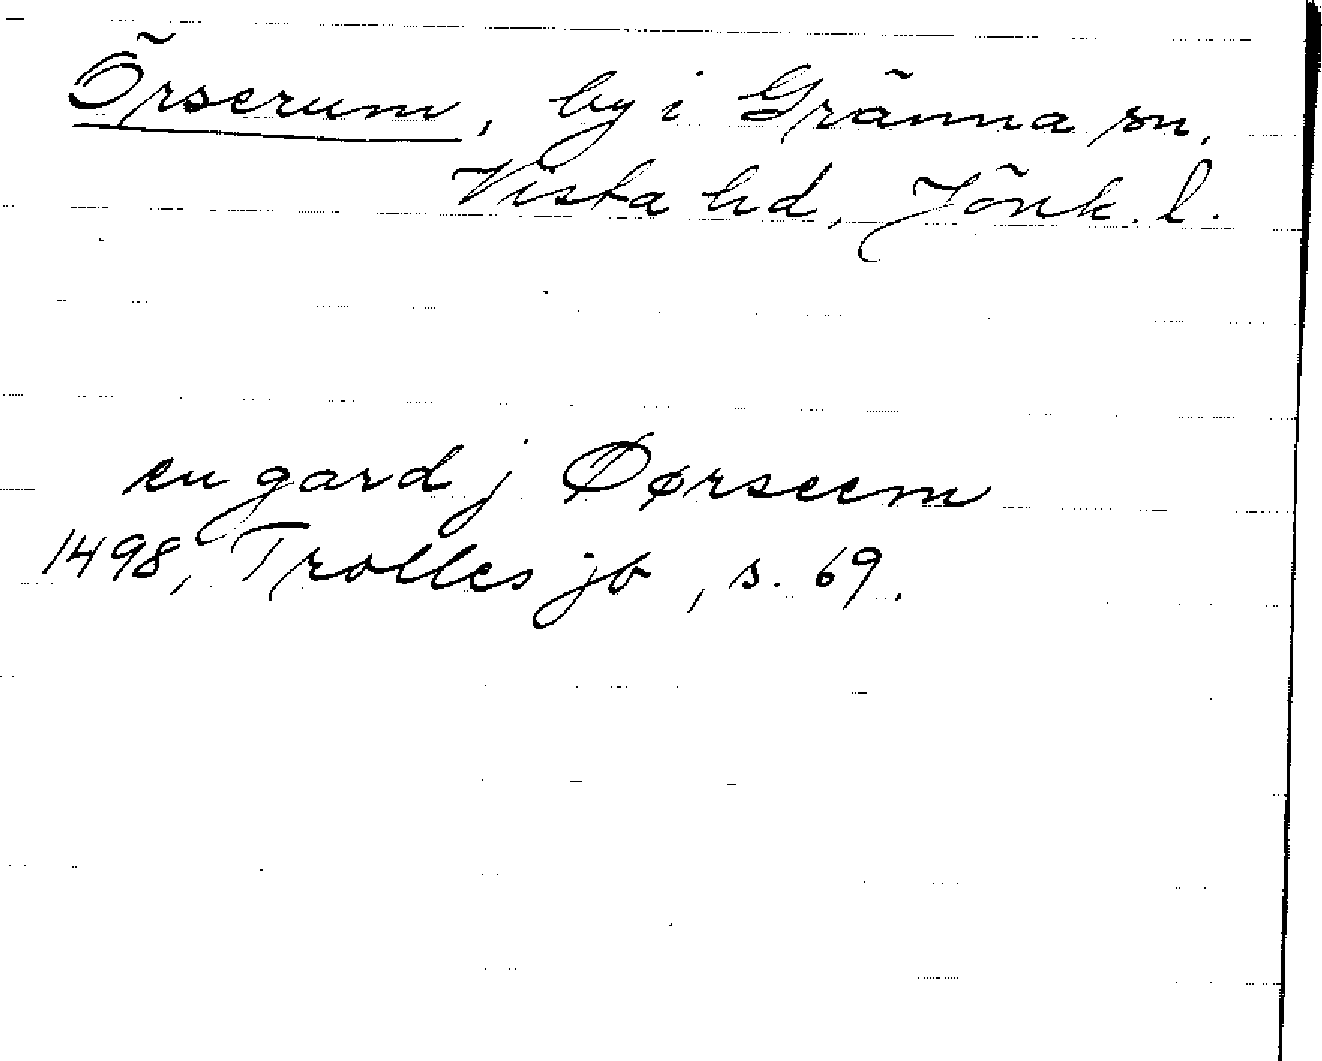 Örserum, by i Gränna sn,
Vista hd, Jönk. l.
en gard j Øørseem
1498, Trolles jb, s. 69.